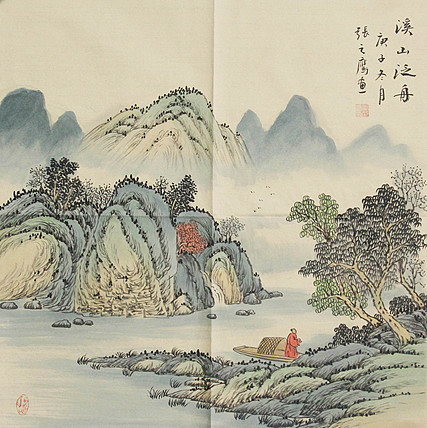 溪山泛舟
庚子冬月
張之畫